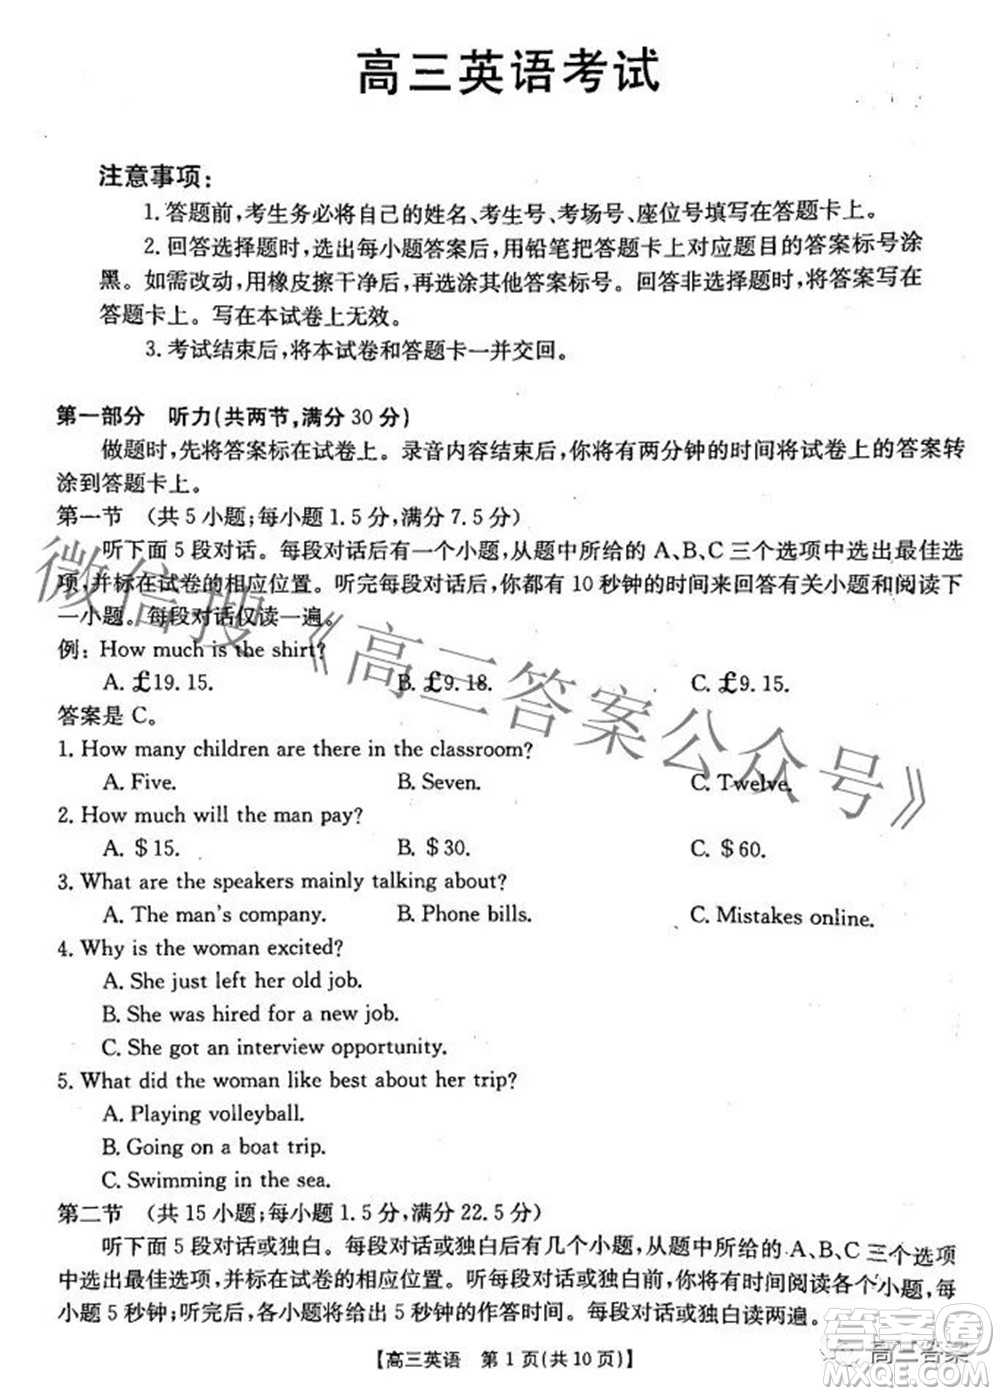 高三英语考试
注意事项：
1. 答题前，考生务必将自己的姓名、考生号、考场号、座位号填写在答题卡上。
2. 回答选择题时，选出每小题答案后，用铅笔把答题卡上对应题目的答案标号涂
黑。如需改动，用橡皮擦干净后，再选涂其他答案标号。回答非选择题时，将答案写在
答题卡上。写在本试卷上无效。
3. 考试结束后，将本试卷和答题卡一并交回。
第一部分 听力(共两节,满分 30 分)
做题时，先将答案标在试卷上。录音内容结束后，你将有两分钟的时间将试卷上的答案转
涂到答题卡上。
第一节 (共 5 小题;每小题 1.5 分,满分 7.5 分)
听下面 5 段对话。每段对话后有一个小题，从题中所给的 A、B、C 三个选项中选出最佳选
项,并标在试卷的相应位置。听完每段对话后,你都有 10 秒钟的时间来回答有关小题和阅读下
一小题。每段对话仅读一遍。
例: How much is the shirt?
A. £19.15. B. £9.18. C. £9.15.
答案是 C。
1. How many children are there in the classroom?
A. Five. B. Seven. C. Twelve.
2. How much will the man pay?
A. $15. B. $30. C. $60.
3. What are the speakers mainly talking about?
A. The man's company. B. Phone bills. C. Mistakes online.
4. Why is the woman excited?
A. She just left her old job.
B. She was hired for a new job.
C. She got an interview opportunity.
5. What did the woman like best about her trip?
A. Playing volleyball.
B. Going on a boat trip.
C. Swimming in the sea.
第二节 (共 15 小题;每小题 1.5 分,满分 22.5 分)
听下面 5 段对话或独白。每段对话或独白后有几个小题,从题中所给的 A、B、C 三个选项
中选出最佳选项,并标在试卷的相应位置。听每段对话或独白前,你将有时间阅读各个小题,每
小题 5 秒钟;听完后,各小题将给出 5 秒钟的作答时间。每段对话或独白读两遍。
【高三英语 第 1 页(共 10 页)】
微信搜《高三答案公众号》
高三答案
答案卷